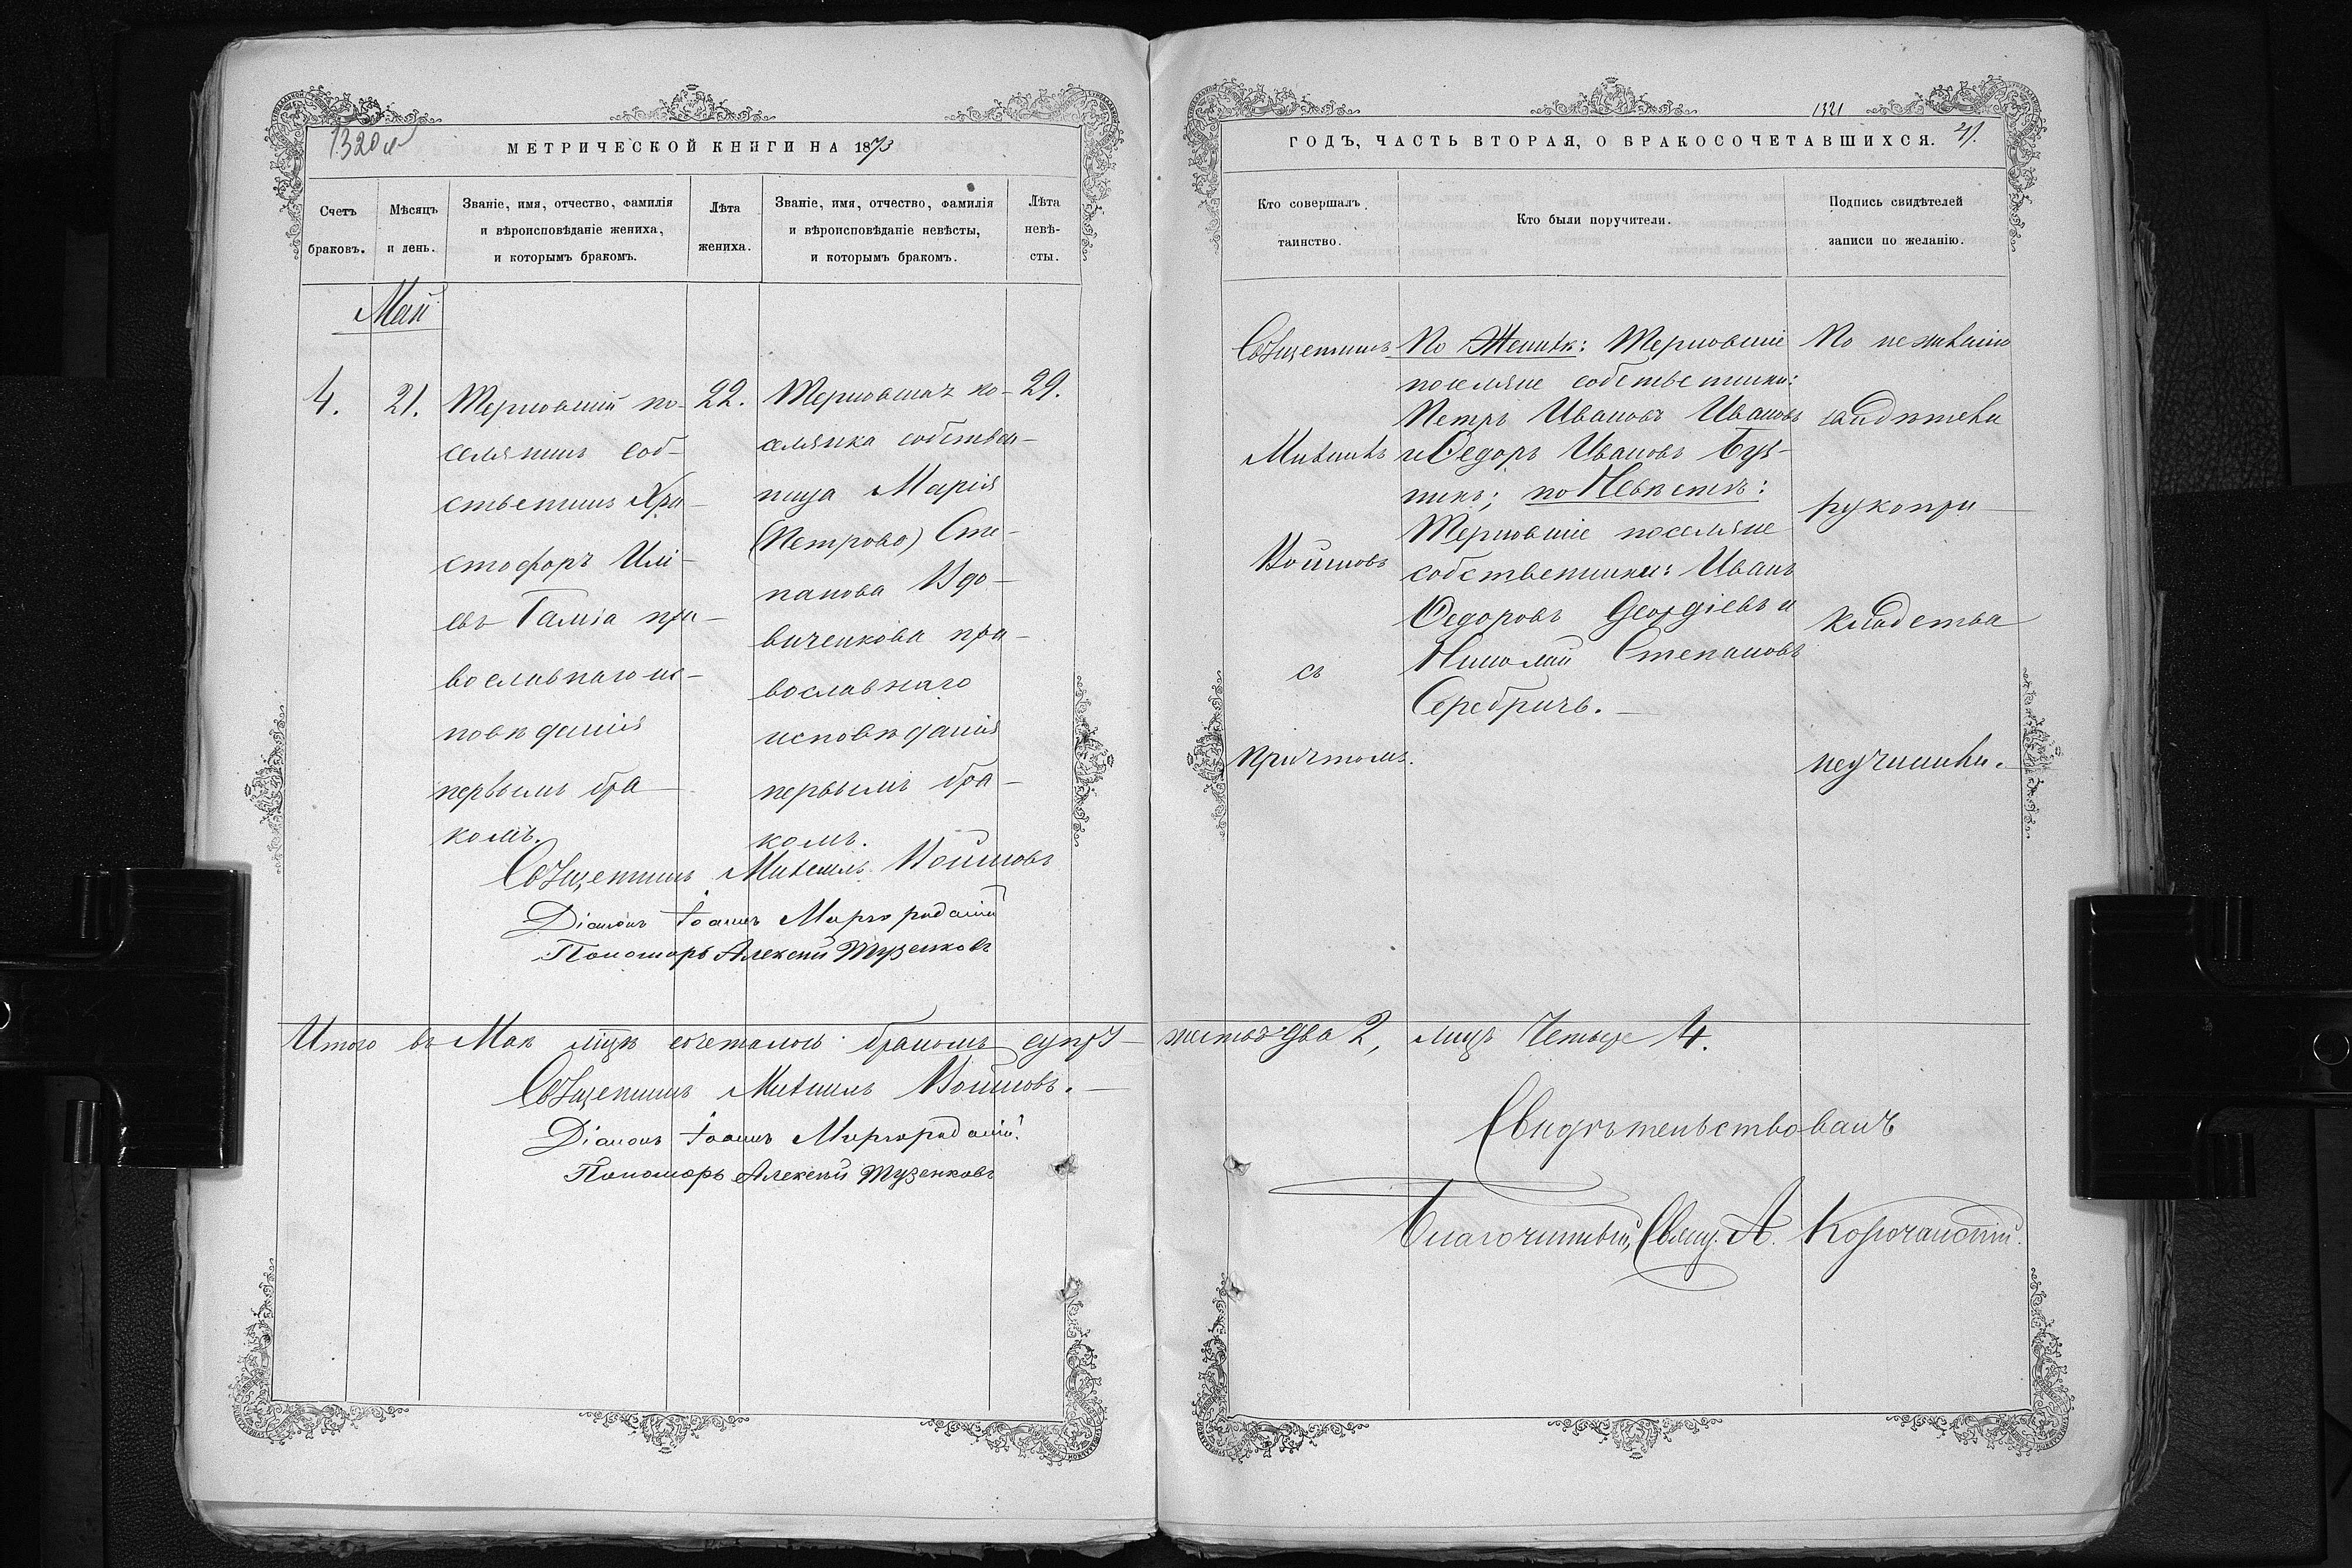 1320
МЕТРИЧЕСКОЙ КНИГИ НА 1873
Счетъ браковъ.
Мѣсяцъ и день.
Званіе, имя, отчество, фамилія и вѣроисповѣданіе жениха, и которымъ бракомъ.
Лѣта жениха.
Званіе, имя, отчество, фамилія и вѣроисповѣданіе невѣсты, и которымъ бракомъ.
Лѣта невѣ-
сты.
Май
4.
21.
Терновскій по-
селянинъ соб-
ственникъ Хри-
стофоръ Илі-
евъ пра-
вославнаго ис-
повѣданія
первымъ бра-
комъ.
22.
Терновская по-
селянка собствен-
ница Марія
(Петрова) Сте-
панова Вдо-
виченкова пра-
вославнаго
исповѣданія
первымъ бра-
комъ.
29.
Священникъ Михаилъ Войновъ
Діаконъ Іоаннъ Миргородскій
Пономарь Алексѣй
Итого въ Маѣ мцѣ сочеталось бракомъ супру-
Священникъ Михаилъ Войновъ.
Діаконъ Іоаннъ Миргородскій.
Пономарь Алексѣй
1321
ГОДЪ, ЧАСТЬ ВТОРАЯ, О БРАКОСОЧЕТАВШИХСЯ.
Кто совершалъ таинство.
Кто были поручители.
Подпись свидѣтелей записи по желанію.
Священникъ
Михаилъ
Войновъ
съ
причтомъ.
По Женихѣ: Терновскіе
поселяне собственники:
Петръ Ивановъ Ивановъ
и Ѳедоръ Ивановъ
по Невѣстѣ:
Терновскіе поселяне
собственники: Иванъ
Ѳедоровъ Георгіевъ и
Николай Степановъ
Серебричъ.
По нежеланію
свидѣтели
рукопри-
кладства
неучинили.
жествъ два 2, лицъ Четыре 4.
Свидѣтельствовалъ
Благочинный, Свящ. А. Корочанскій.